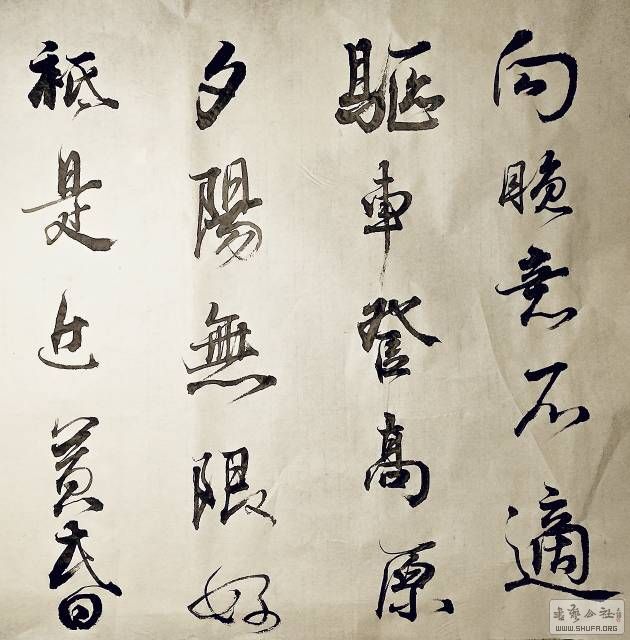 向晚意不適
驅車登高原
夕陽無限好
祗是近黄昏
書藝公社
WWW.SHUFA.ORG